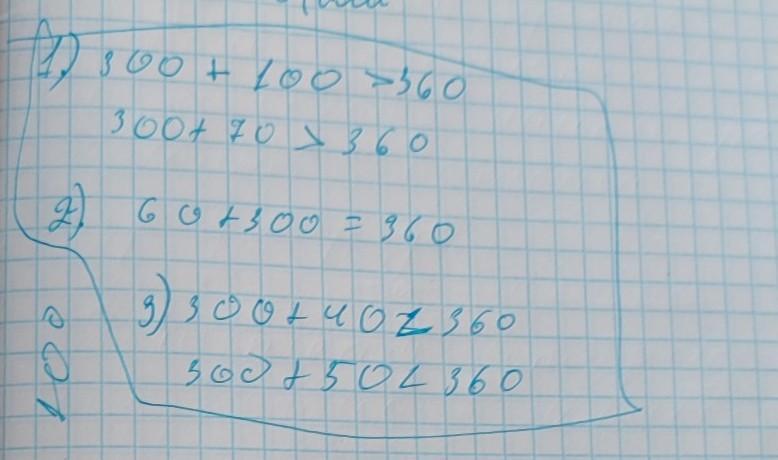 1) 300 + 100 > 360
300 + 70 > 360
2) 60 + 300 = 360
3) 300 + 40 < 360
300 + 50 < 360
100